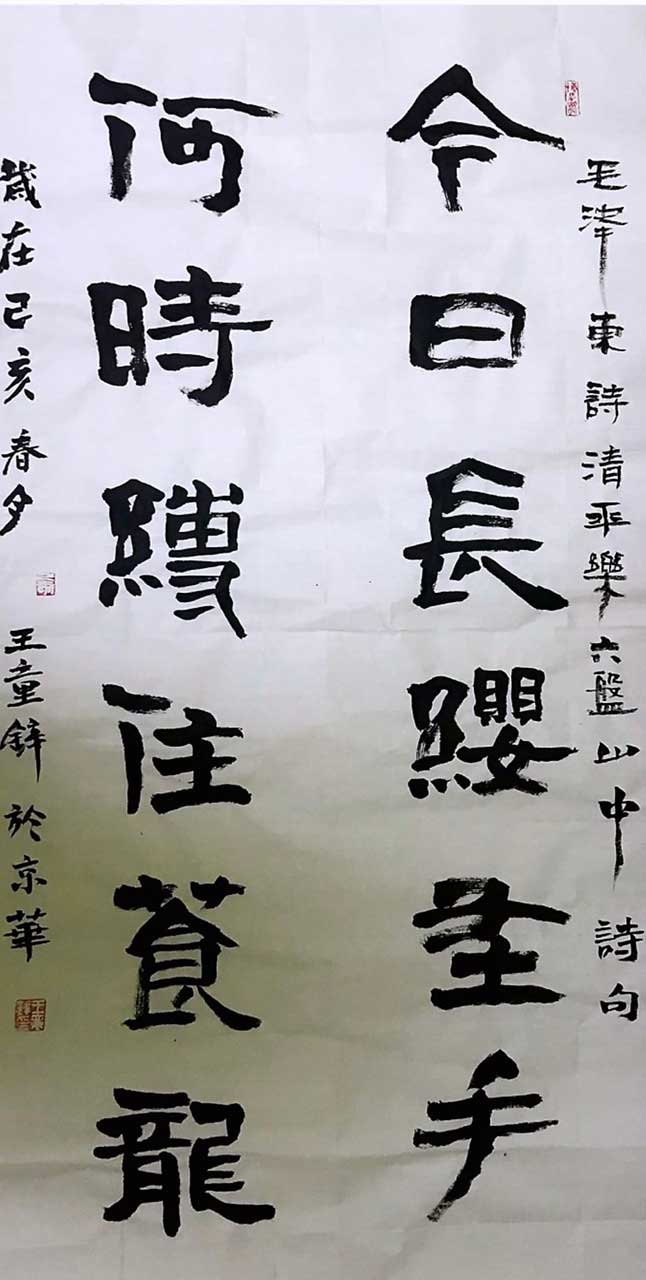 毛泽東詩清平樂六盤山中詩句
今日長纓在手
何時縛住蒼龍
歲在己亥春夕
王童於京華